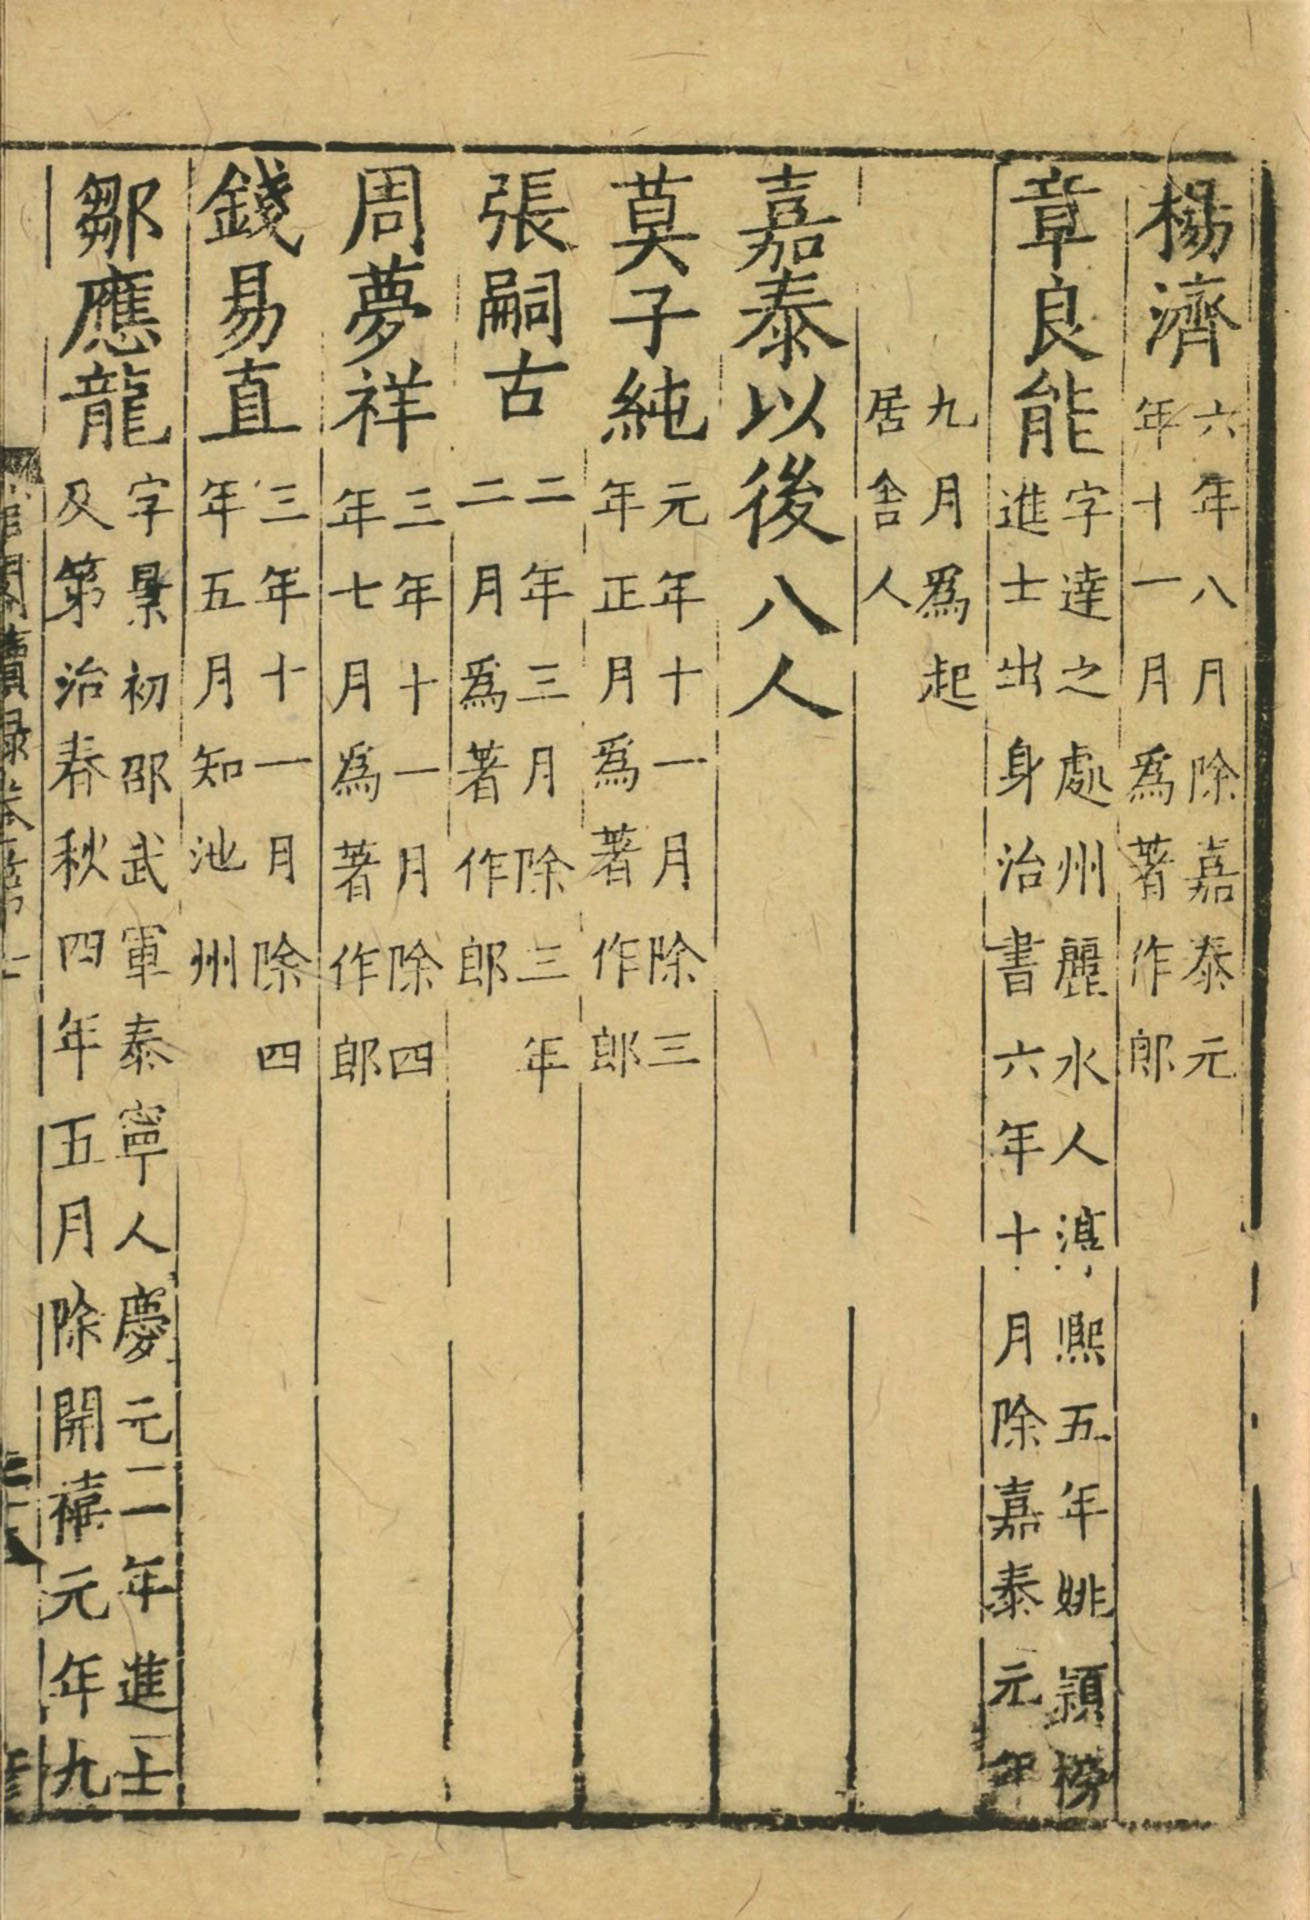 楊濟六年八月除嘉泰元
年十一月爲著作郎
章良能字達之處州麗水人淳熙五年姚穎榜
進士出身治書六年十月除嘉泰元年
九月爲起
居舍人
嘉泰以後八人
莫子純元年十一月除三
年正月爲著作郎
張嗣古二年三月除三年
二月爲著作郎
周夢祥三年十一月除四
年七月爲著作郎
錢易直三年十一月除四
年五月知池州
鄒應龍字景初邵武軍泰寧人慶元二年進士
及第治春秋四年五月除開禧元年九